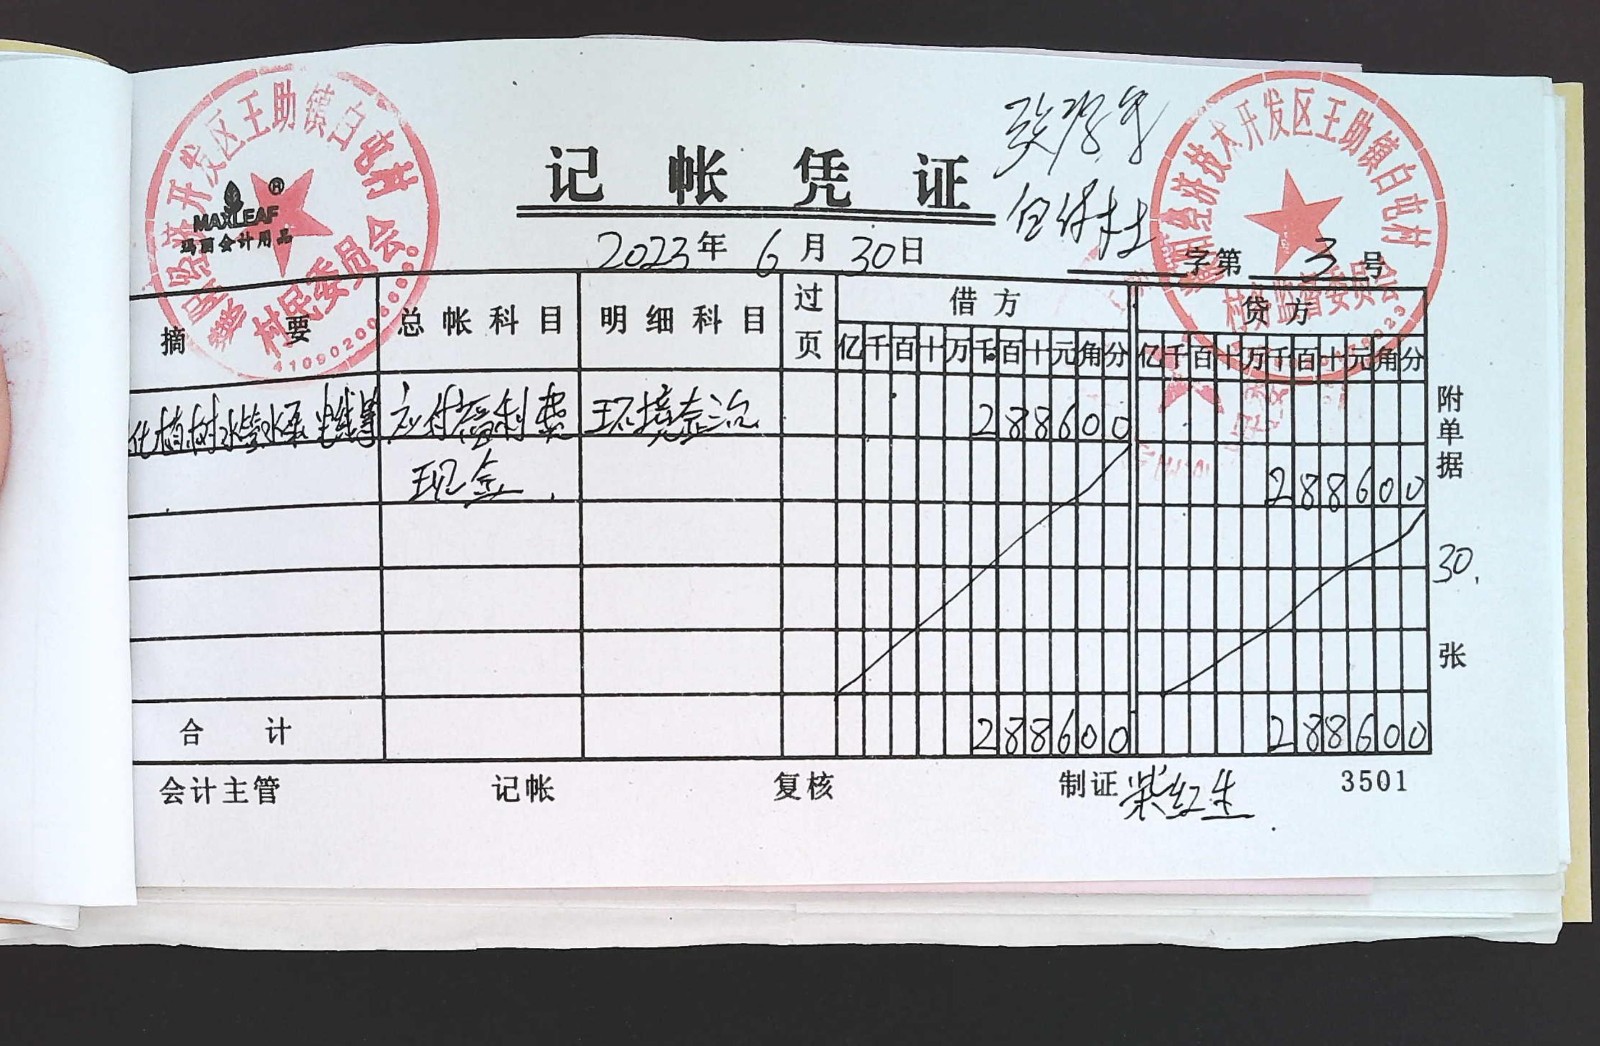 开发区王助镇白屯村
村民委员会
经济技术开发区王助镇白屯村
村务监督委员会
MAXLEAF ®
玛丽会计用品
记帐凭证
2023年6月30日
字第 3 号
摘要 总帐科目 明细科目 过页 借方 贷方
亿千百十万千百十元角分 亿千百十万千百十元角分
化植树水管水泵电线等 应付福利费 环境奎治 288600
现金 288600
合计 288600 288600
附单据 30 张
会计主管 记帐 复核 制证 柴红生 3501